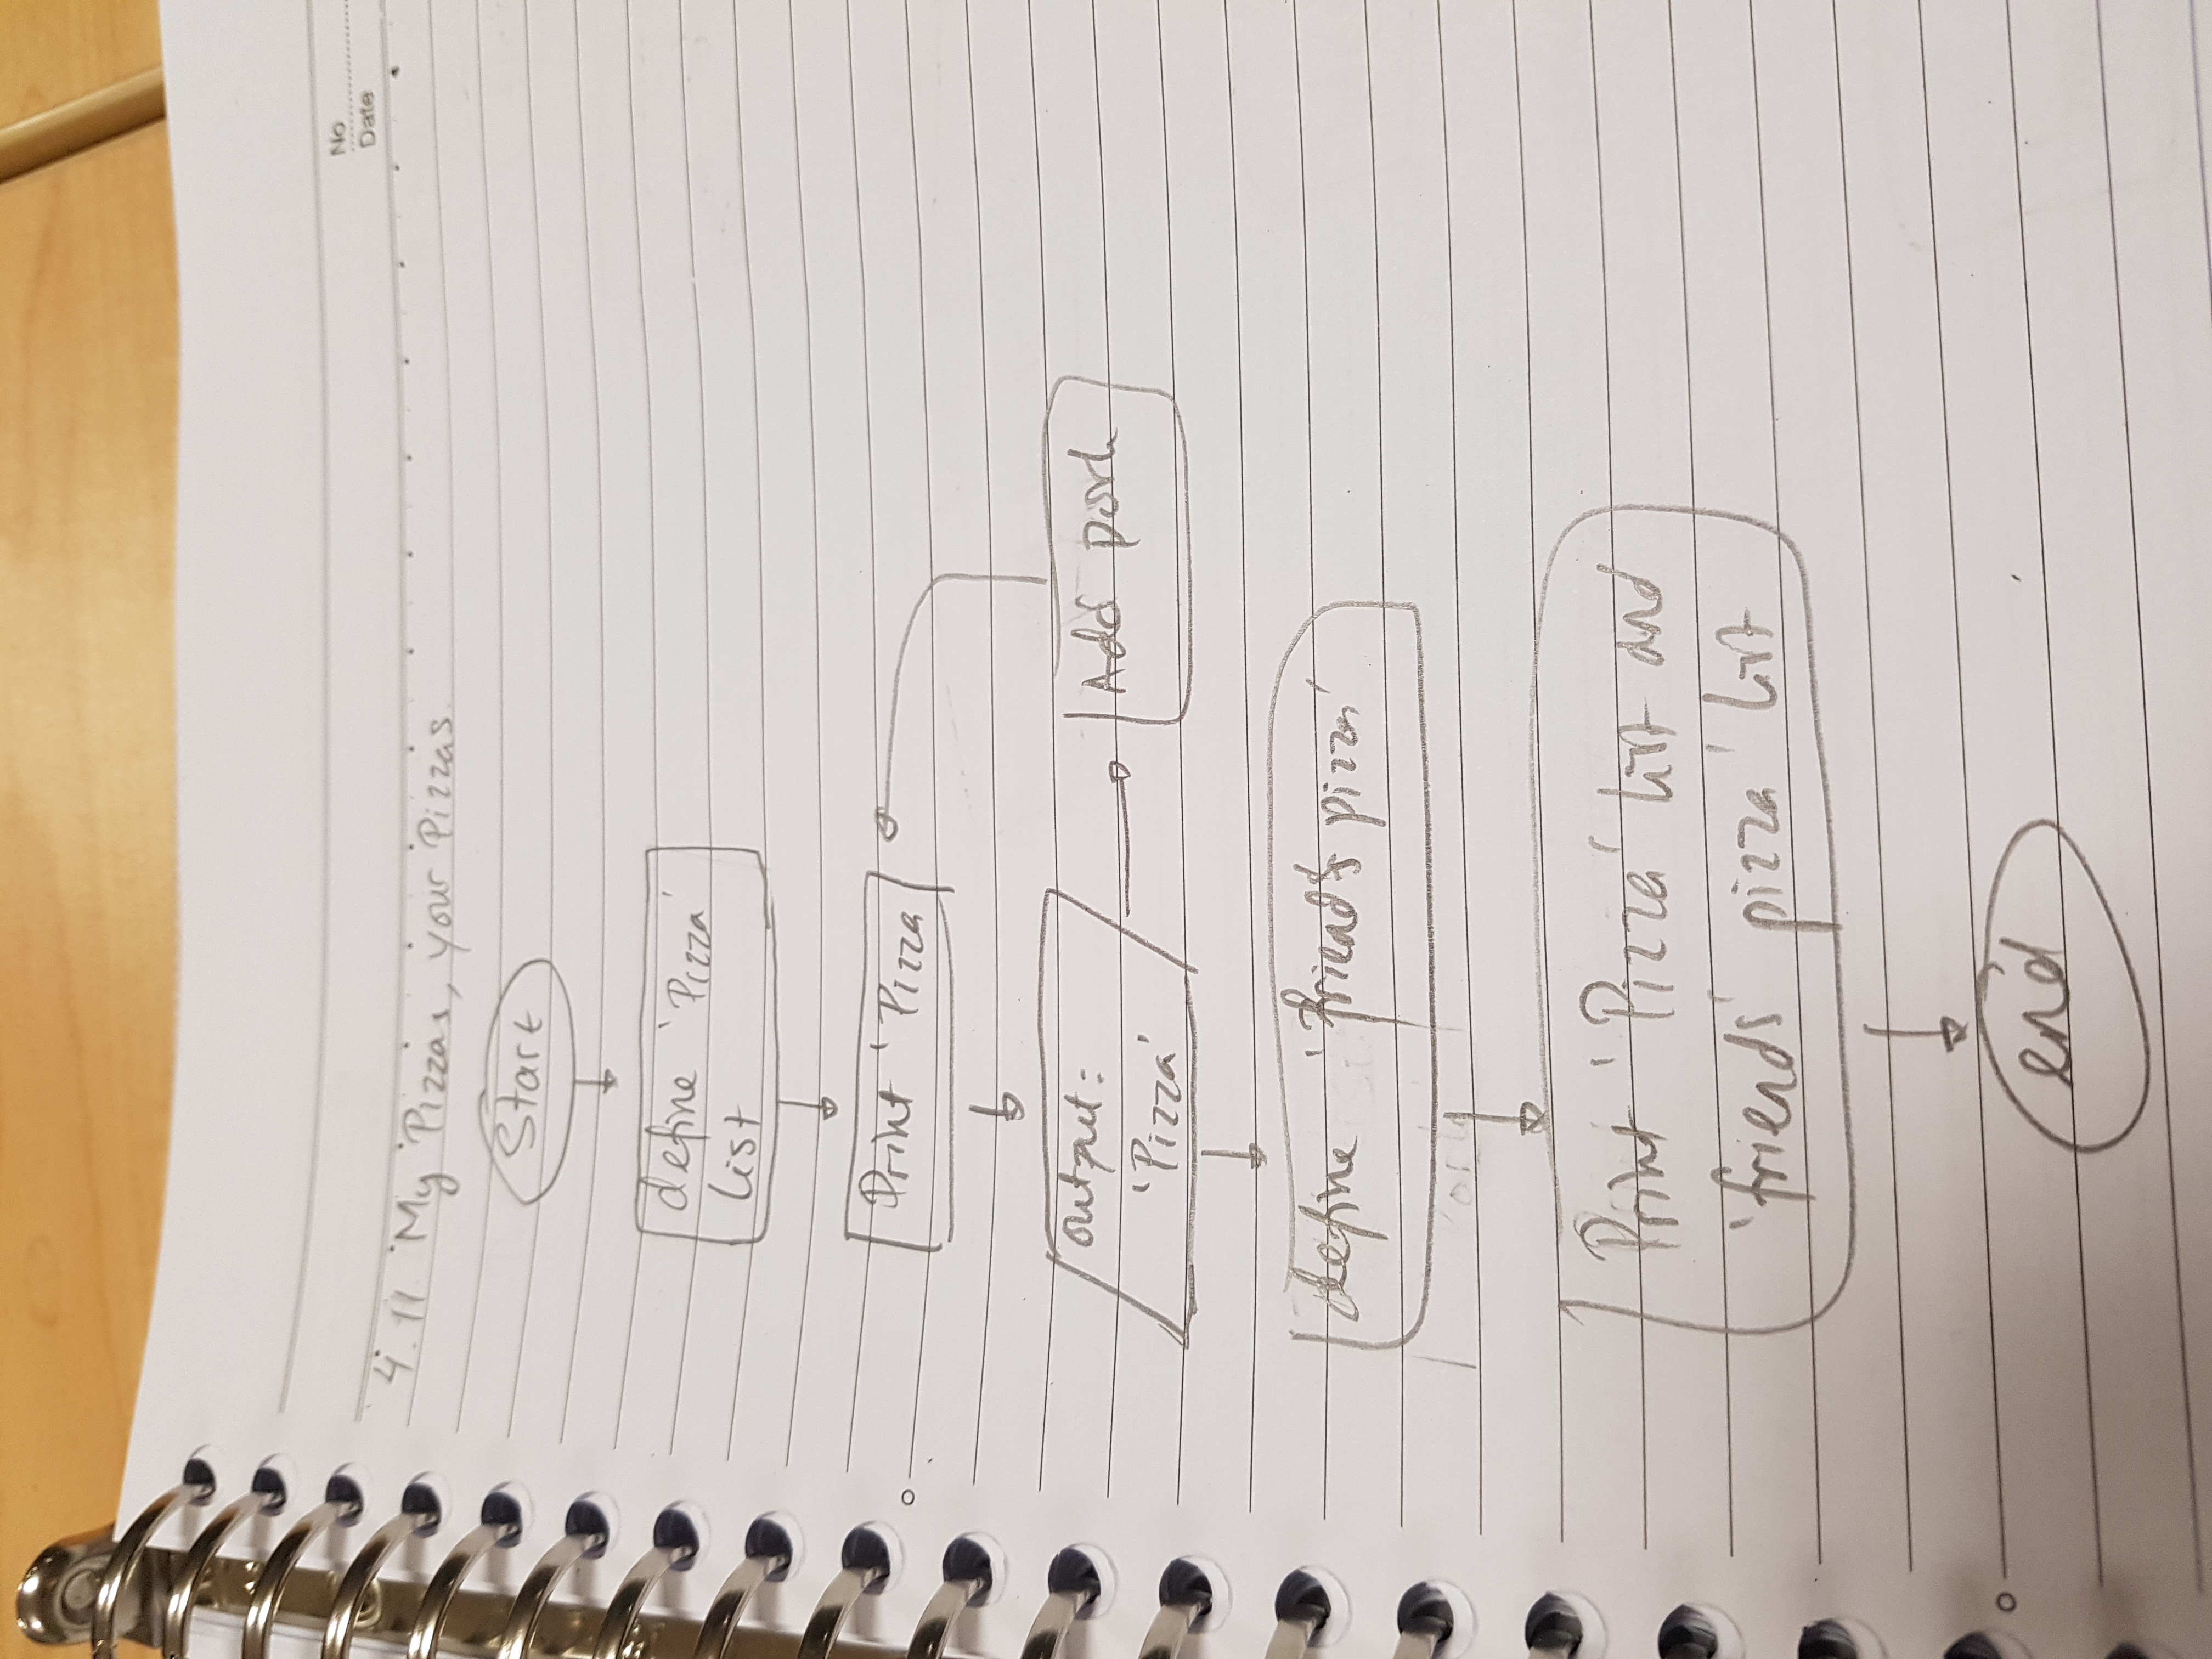 No
Date
4.11. My Pizzas, your Pizzas.
Start
define 'Pizza'
list
Print 'Pizza
output:
'Pizza'
Add pork
define 'friend's pizza'
Print 'Pizza' list and
'friends' pizza' list
end